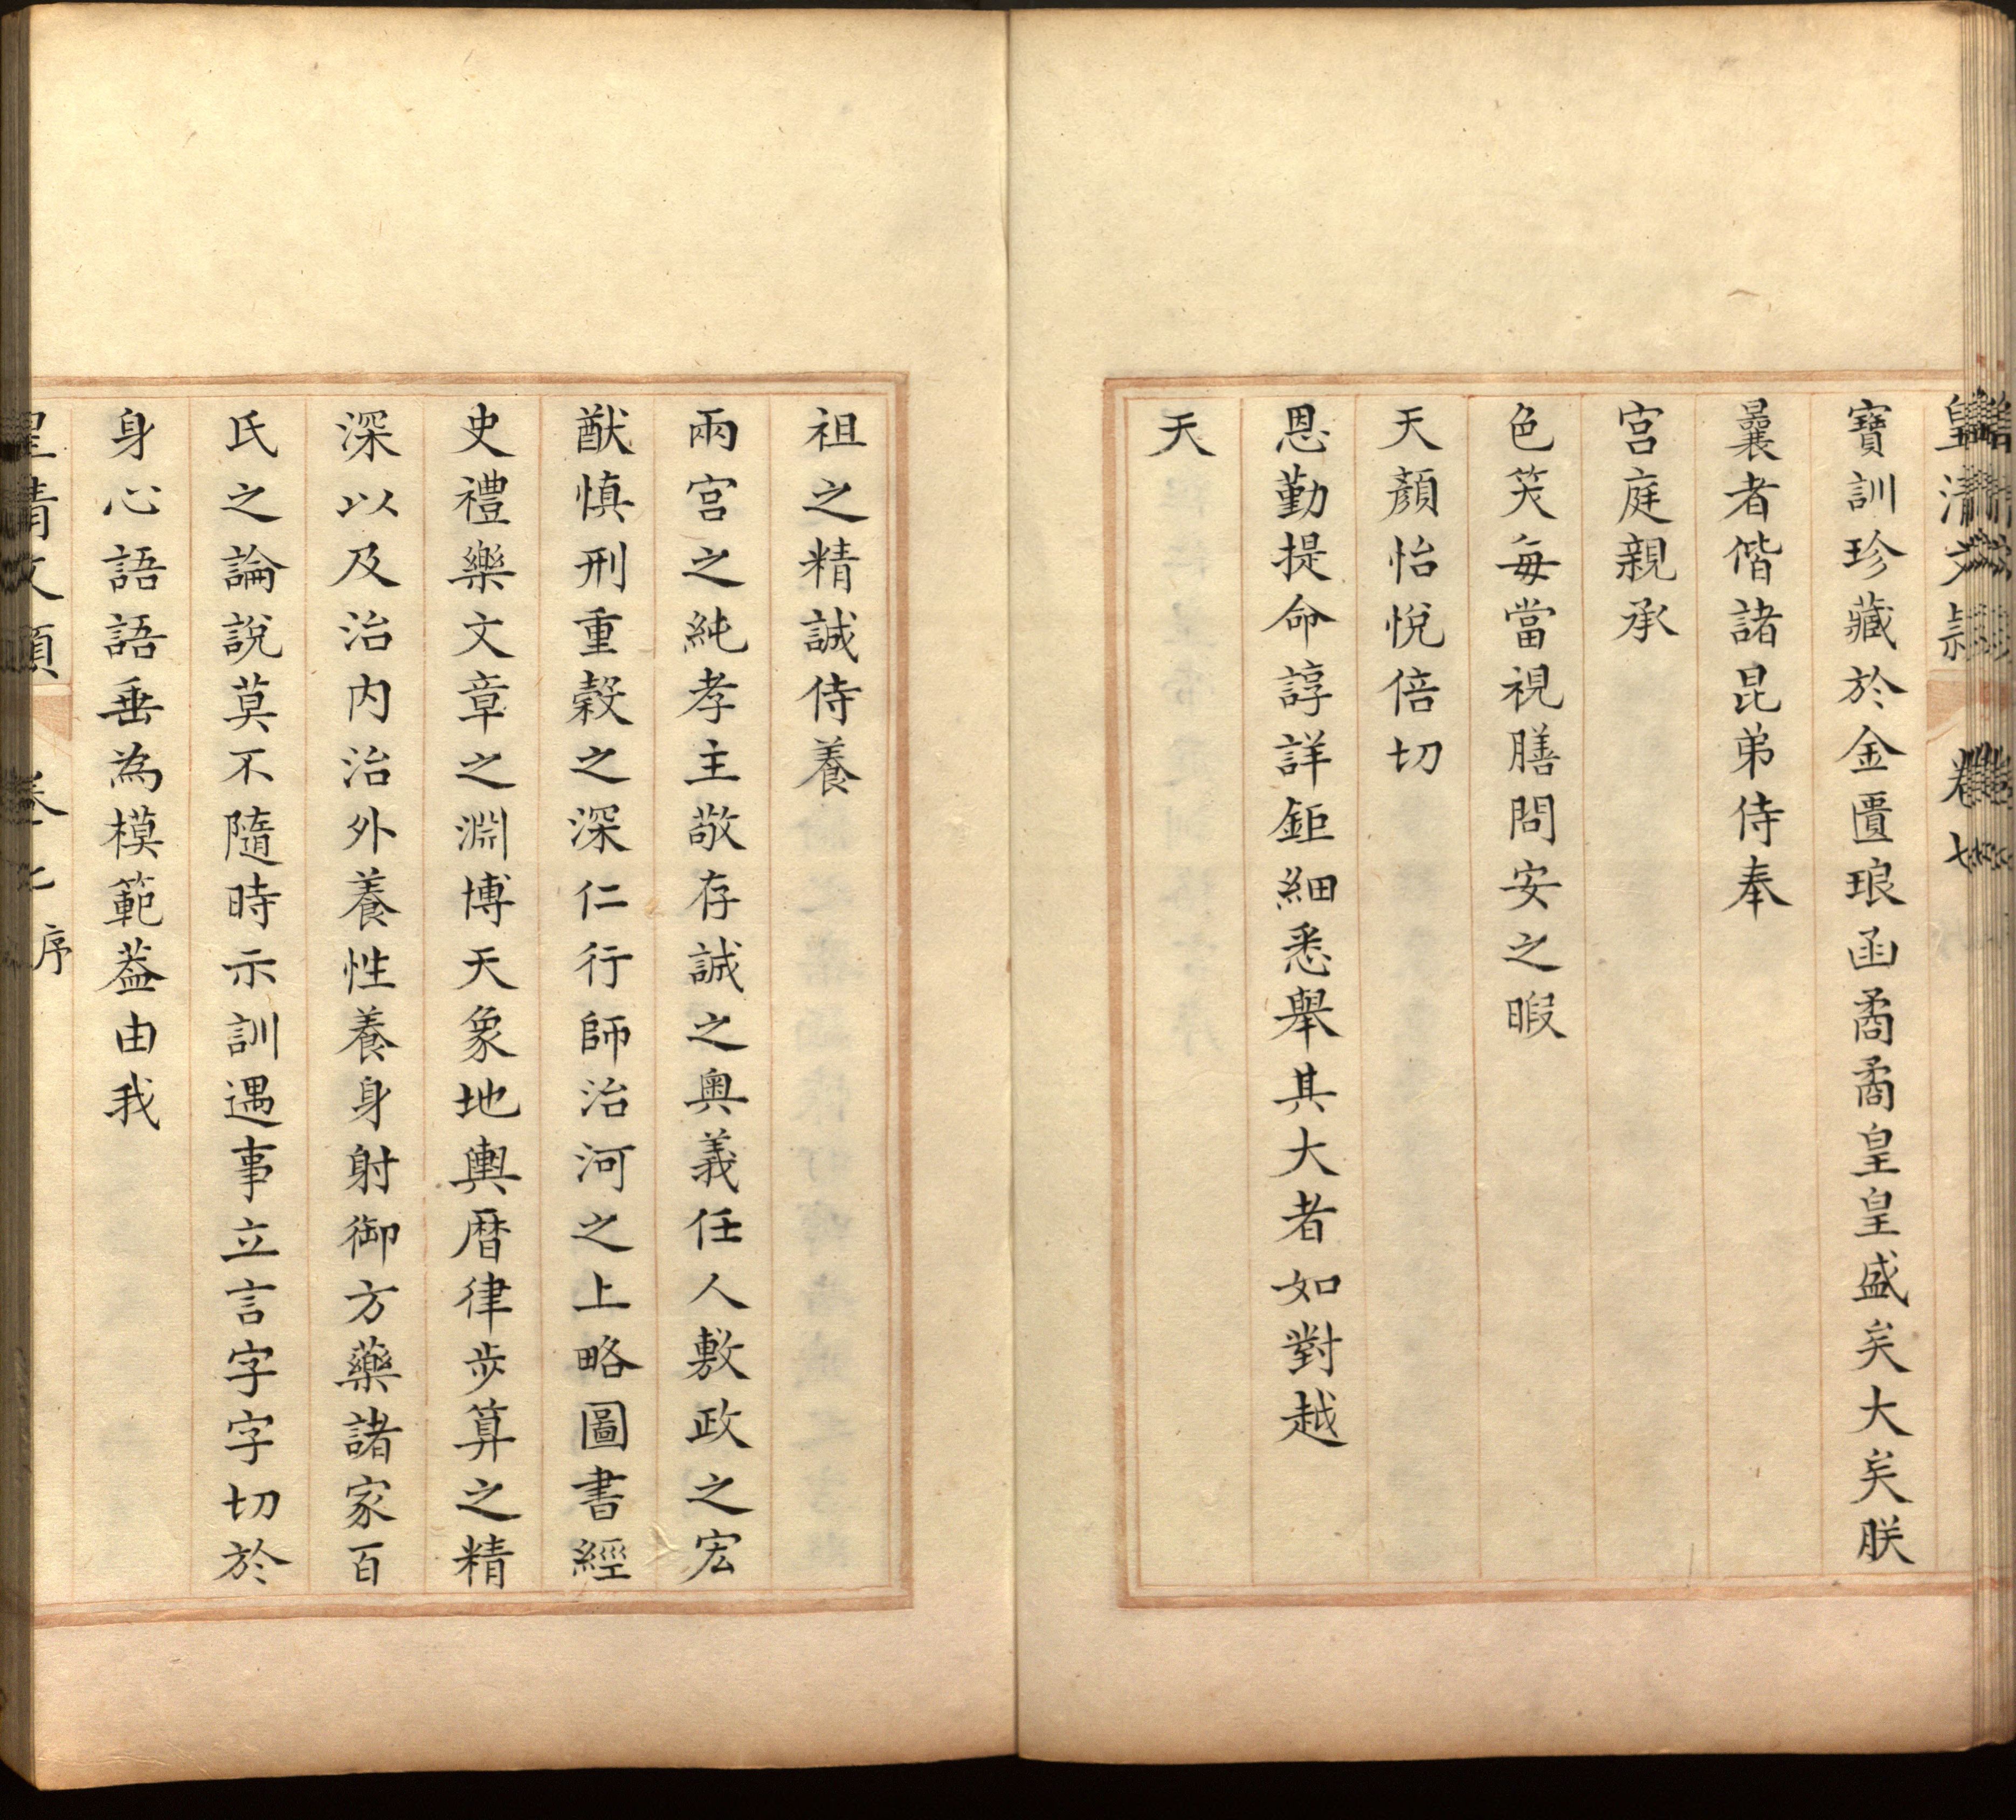 皇清文穎 卷七
寶訓珍藏於金匱琅函矞矞皇皇盛矣大矣朕
曩者偕諸昆弟侍奉
宫庭親承
色笑每當視膳問安之暇
天顏怡悅倍切
恩勤提命諄詳鉅細悉舉其大者如對越
天
祖之精誠侍養
兩宫之純孝主敬存誠之奥義任人敷政之宏
猷慎刑重榖之深仁行師治河之上略圖書經
史禮樂文章之淵博天象地輿曆律步算之精
深以及治内治外養性養身射御方藥諸家百
氏之論說莫不隨時示訓遇事立言字字切於
身心語語垂為模範葢由我
皇清文穎 卷七 序